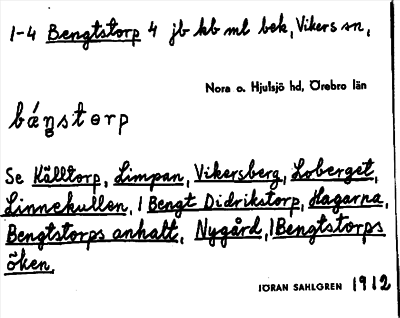 1-4 Bengtstorp 4 jb kb ml bek, Vikers sn,
Nora o. Hjulsjö hd, Örebro län
báŋstɵrp
Se Källtorp, Limpan, Vikersberg, Loberget,
Linnekullen, / Bengt Didrikstorp, Hagarna,
Bengtstorps anhalt, Nygård, / Bengtstorps
öken,
JÖRAN SAHLGREN 1912